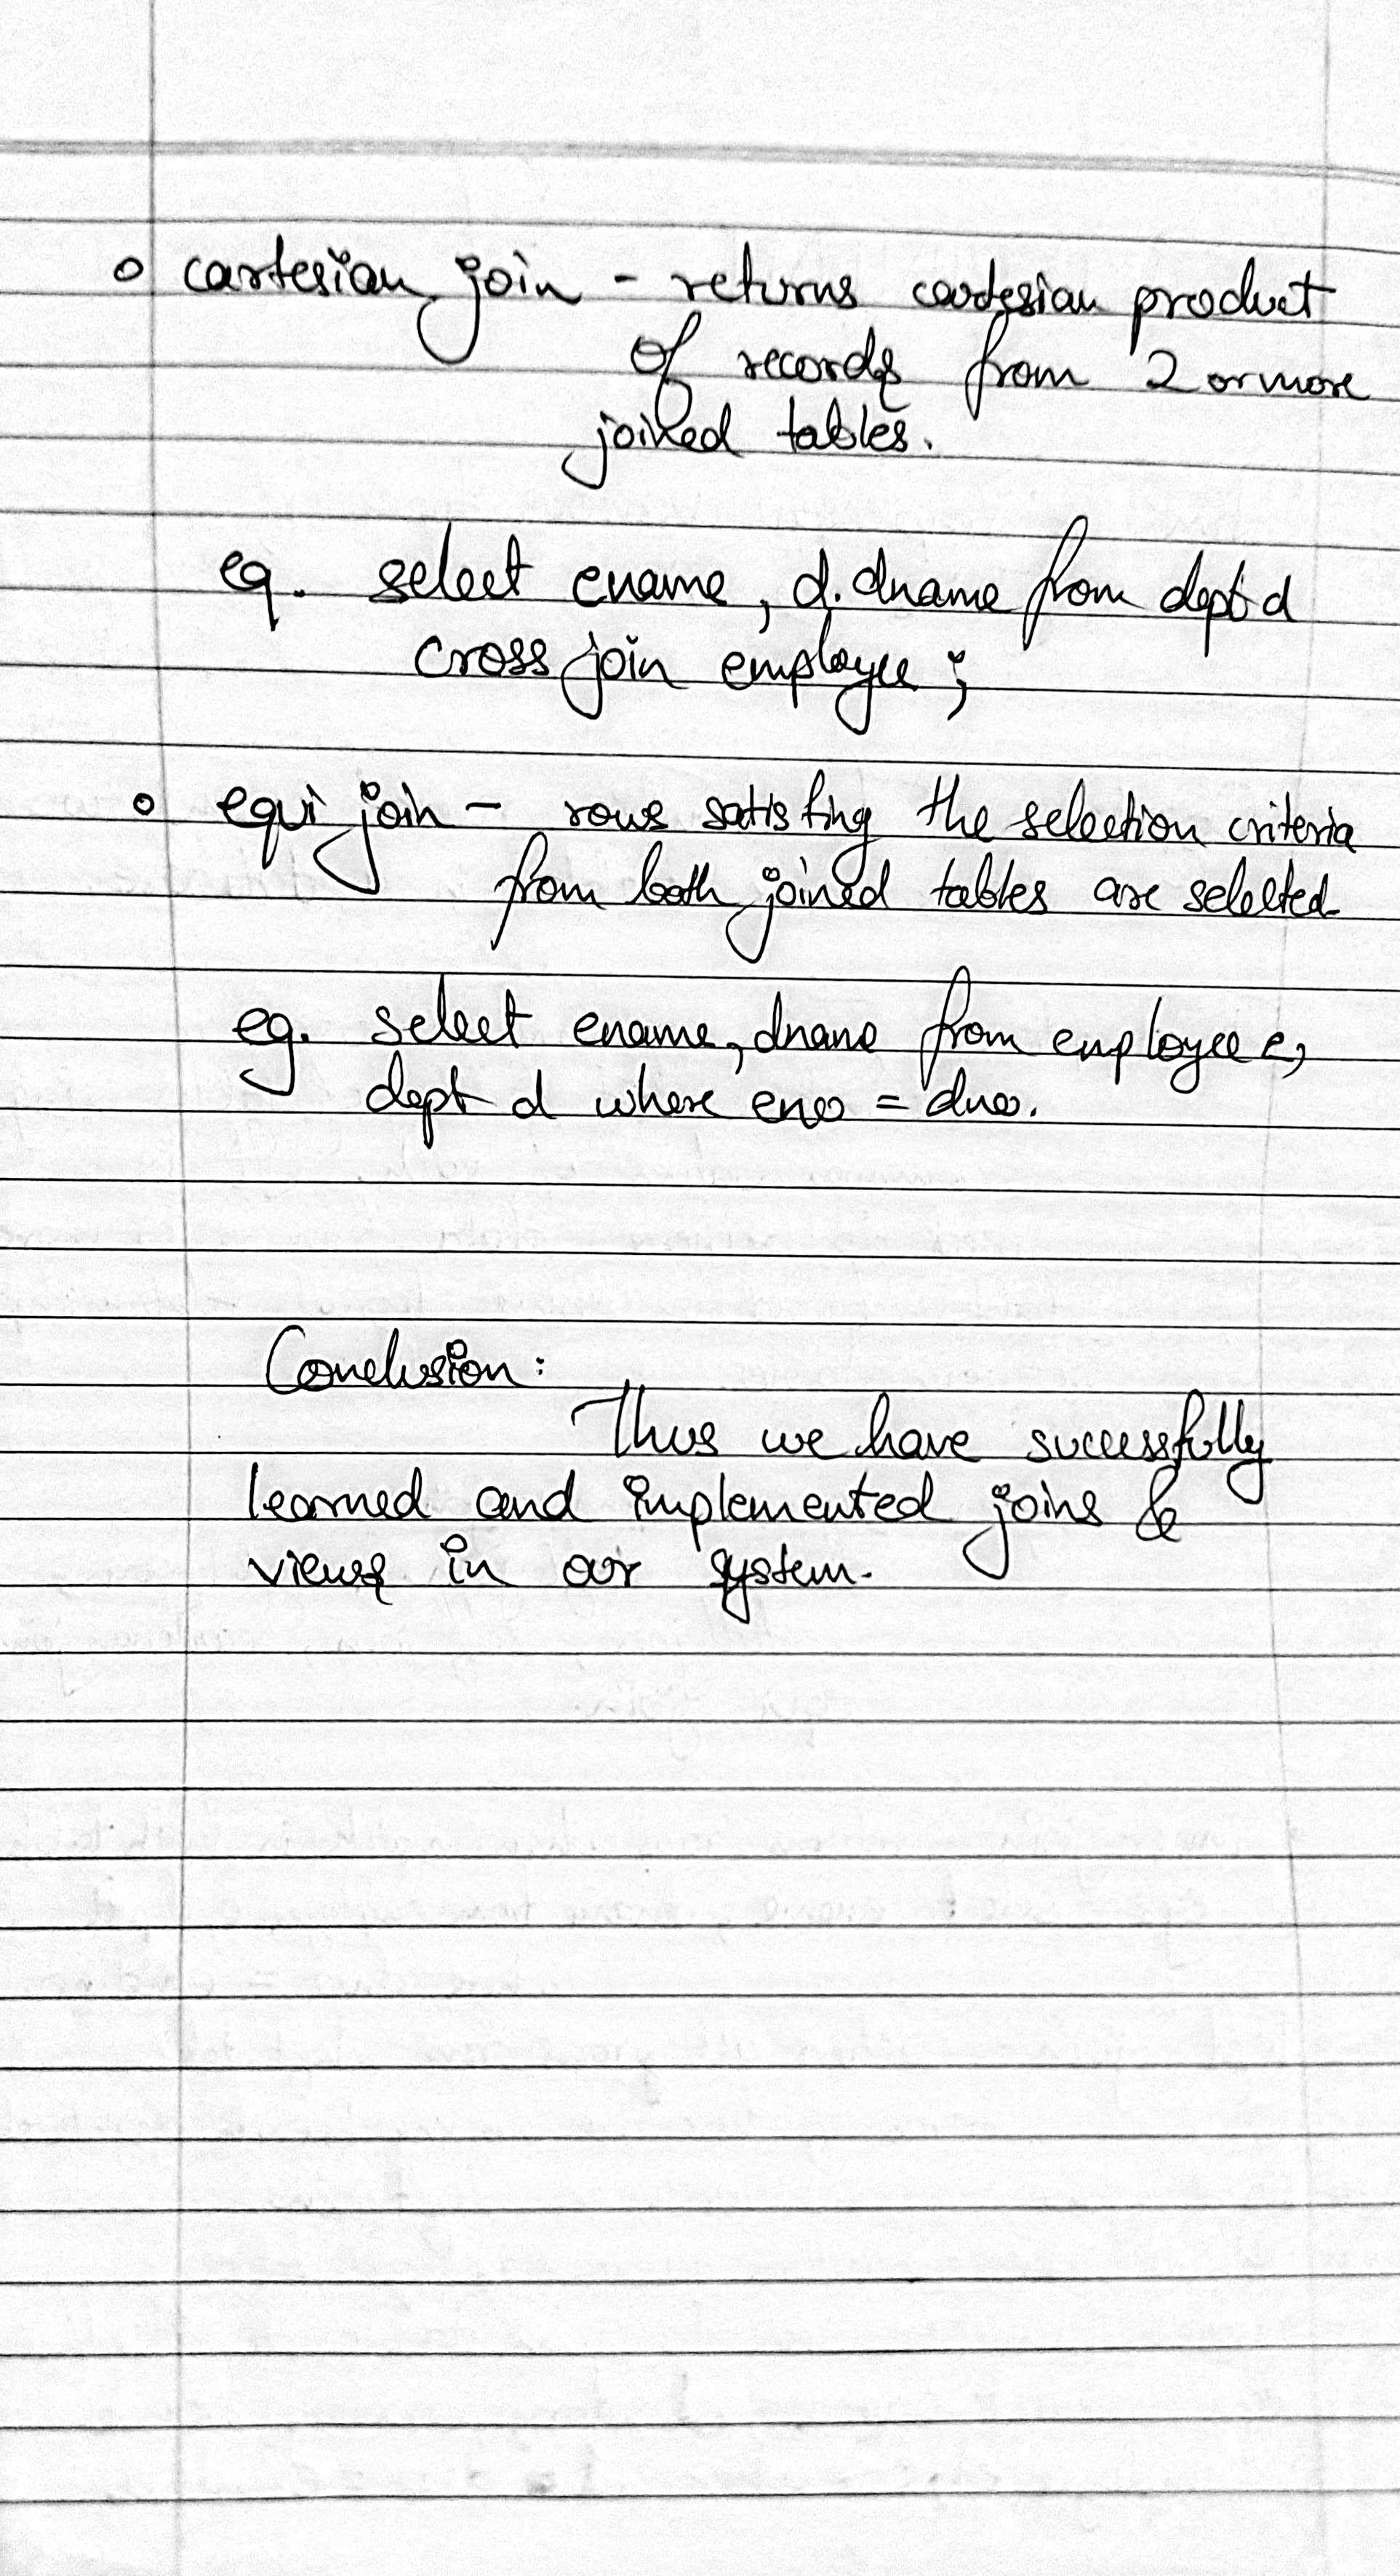 o cartesian join - returns cartesian product
of records from 2 or more
joined tables.
eg. select ename, d.dname from dept d
cross join employee;
o equi join - rows satisfing the selection criteria
from both joined tables are selected
eg. select ename, dname from employee e,
dept d where eno = dno.
Conclusion:
Thus we have successfully
learned and implemented joins &
views in our system.